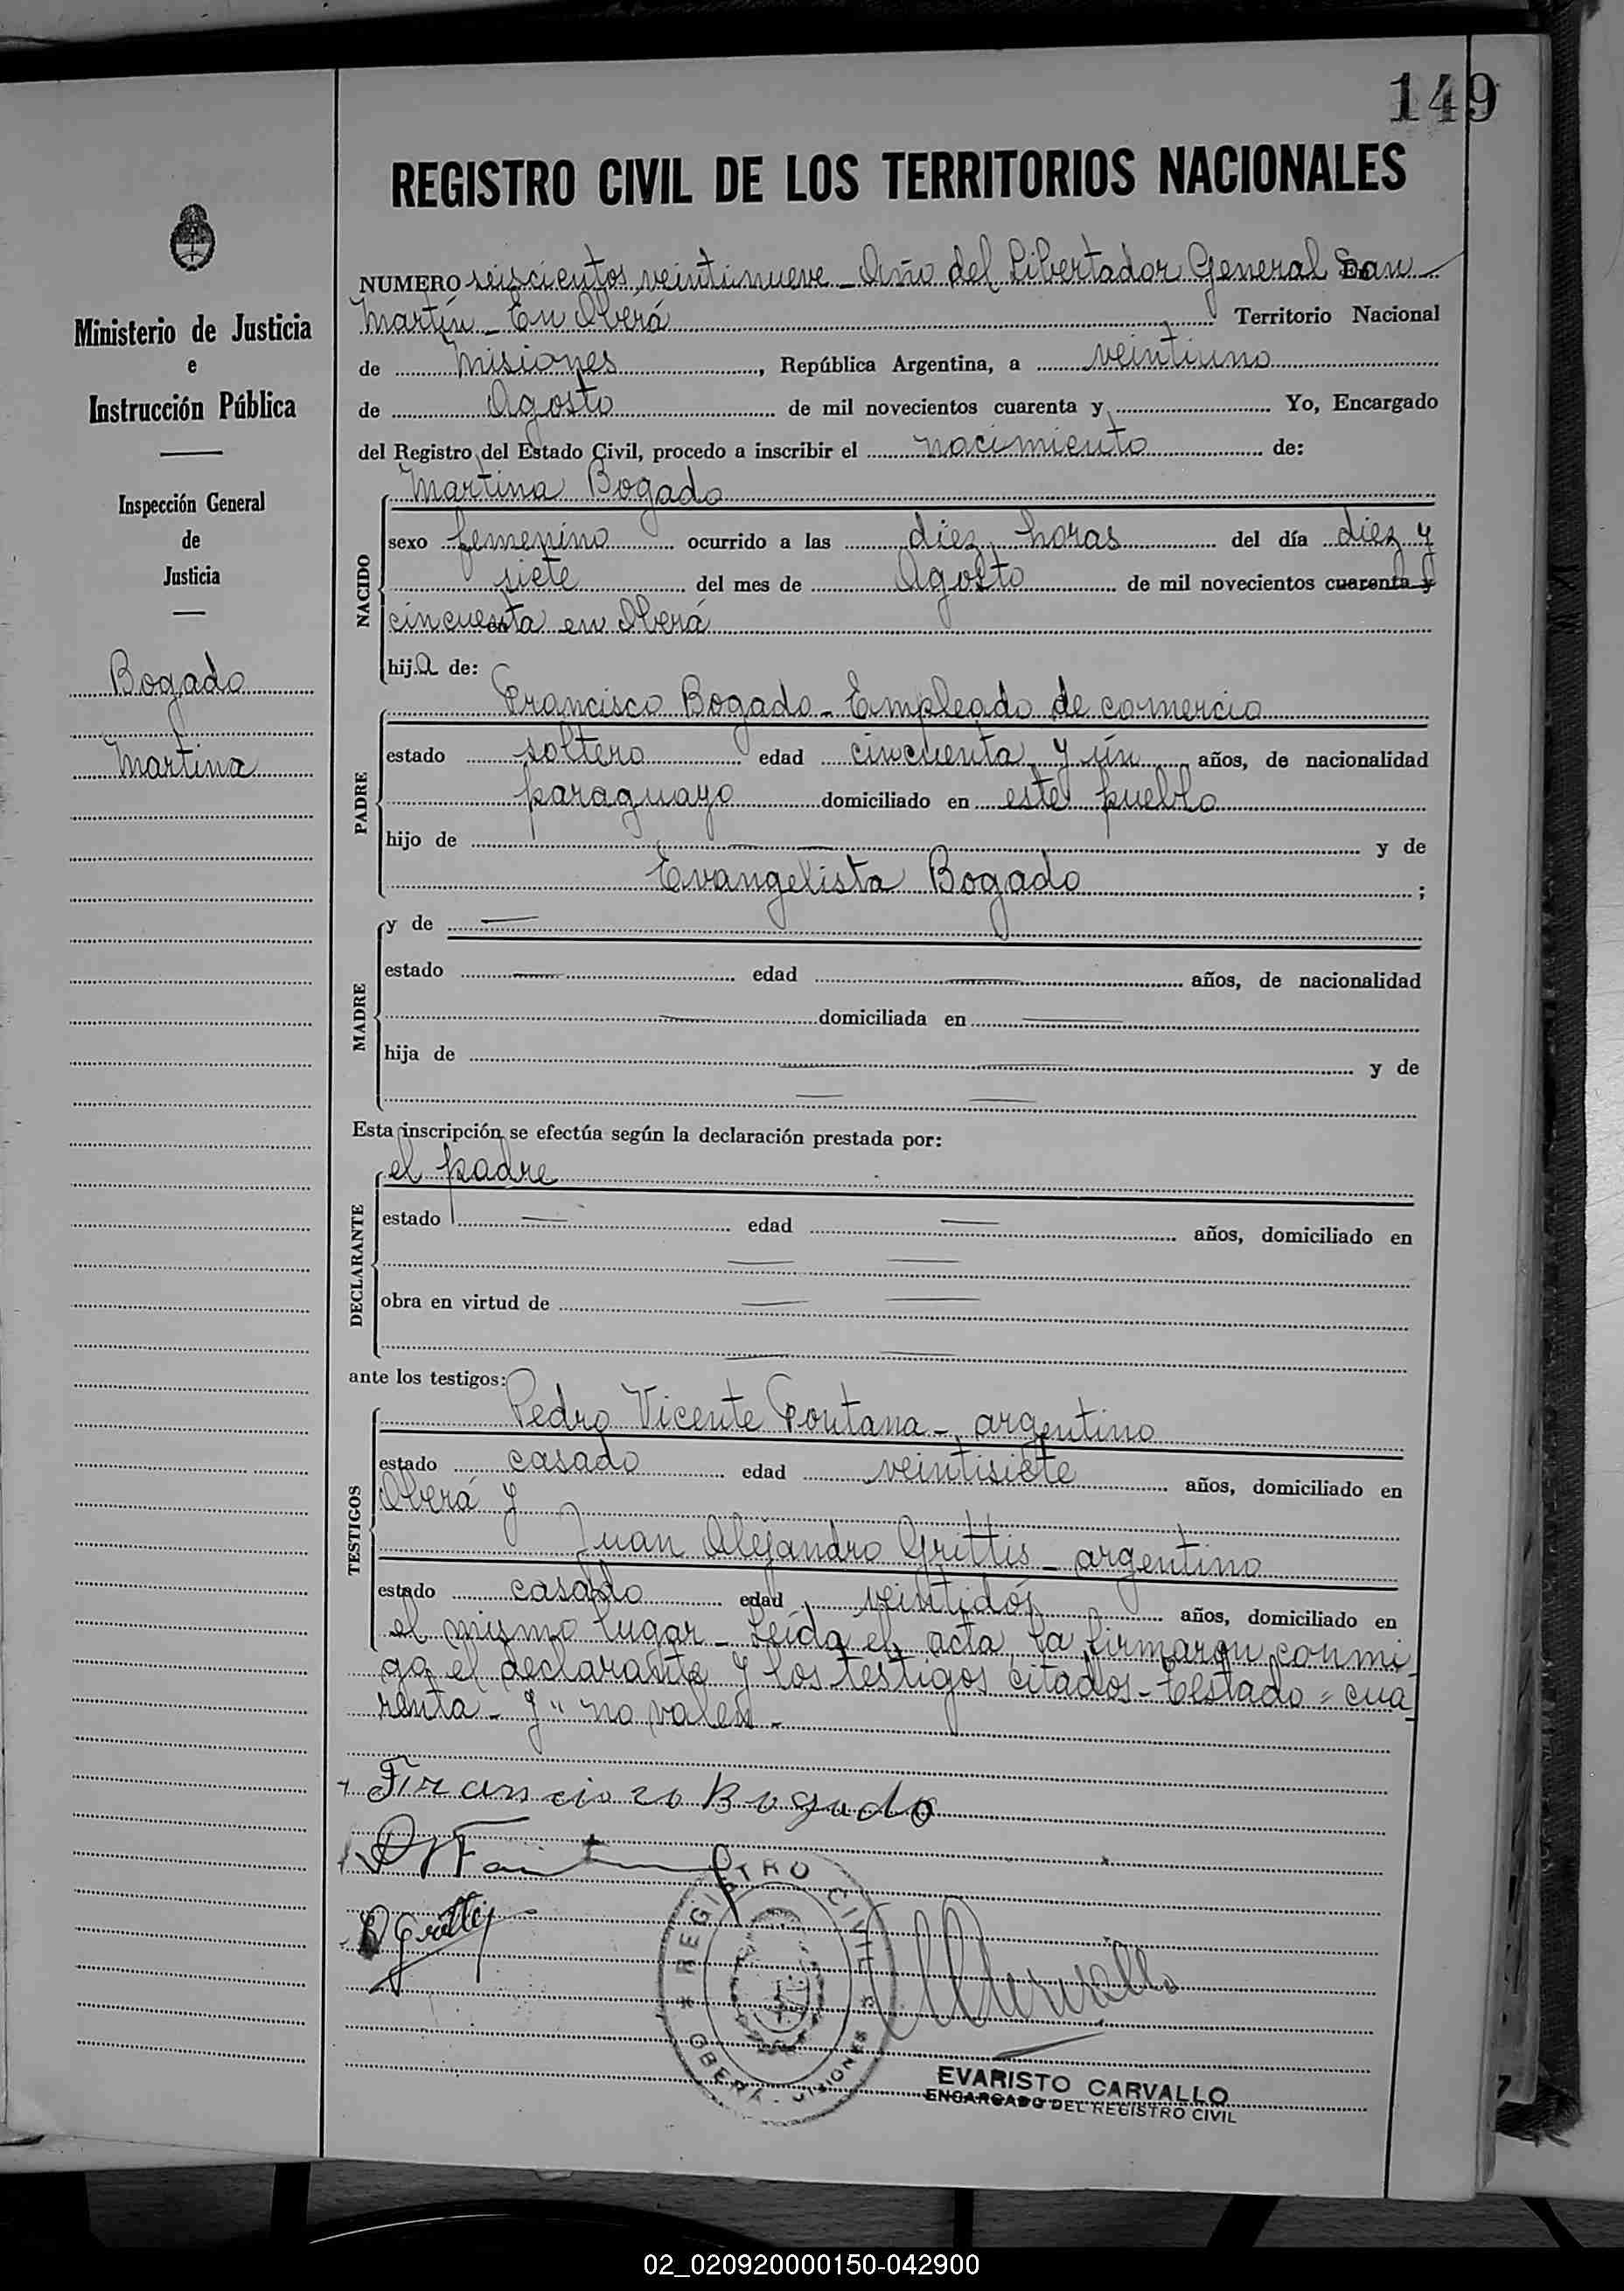 149
REGISTRO CIVIL DE LOS TERRITORIOS NACIONALES
NUMERO seiscientos veintinueve - Año del Libertador General San
Martín - En Oberá Territorio Nacional
de Misiones, República Argentina, a veintiuno
de Agosto de mil novecientos cuarenta y Yo, Encargado
del Registro del Estado Civil, procedo a inscribir el nacimiento de:
Martina Bogado
NACIDO
sexo femenino ocurrido a las diez horas del día diez y
siete del mes de Agosto de mil novecientos cuarenta y
cincuenta en Oberá
hija de:
Francisco Bogado - Empleado de comercio
PADRE
estado soltero edad cincuenta y un años, de nacionalidad
paraguayo domiciliado en este pueblo
hijo de y de
Evangelista Bogado ;
MADRE
y de
estado edad años, de nacionalidad
domiciliada en
hija de y de
Esta inscripción se efectúa según la declaración prestada por:
el padre
DECLARANTE
estado edad años, domiciliado en
obra en virtud de
ante los testigos:
Pedro Vicente Fontana - argentino
TESTIGOS
estado casado edad veintisiete años, domiciliado en
Oberá y
Juan Alejandro Grittis - argentino
estado casado edad veintidós años, domiciliado en
el mismo lugar - Leída el acta, la firmaron conmi
go, el declarante y los testigos citados - Testado "cua
renta - y" no valen -
Francisco Bogado
Grittis
REGISTRO CIVIL
OBERÁ - MISIONES
EVARISTO CARVALLO
ENCARGADO DEL REGISTRO CIVIL
Ministerio de Justicia
e
Instrucción Pública
Inspección General
de
Justicia
Bogado
Martina
02_020920000150-042900